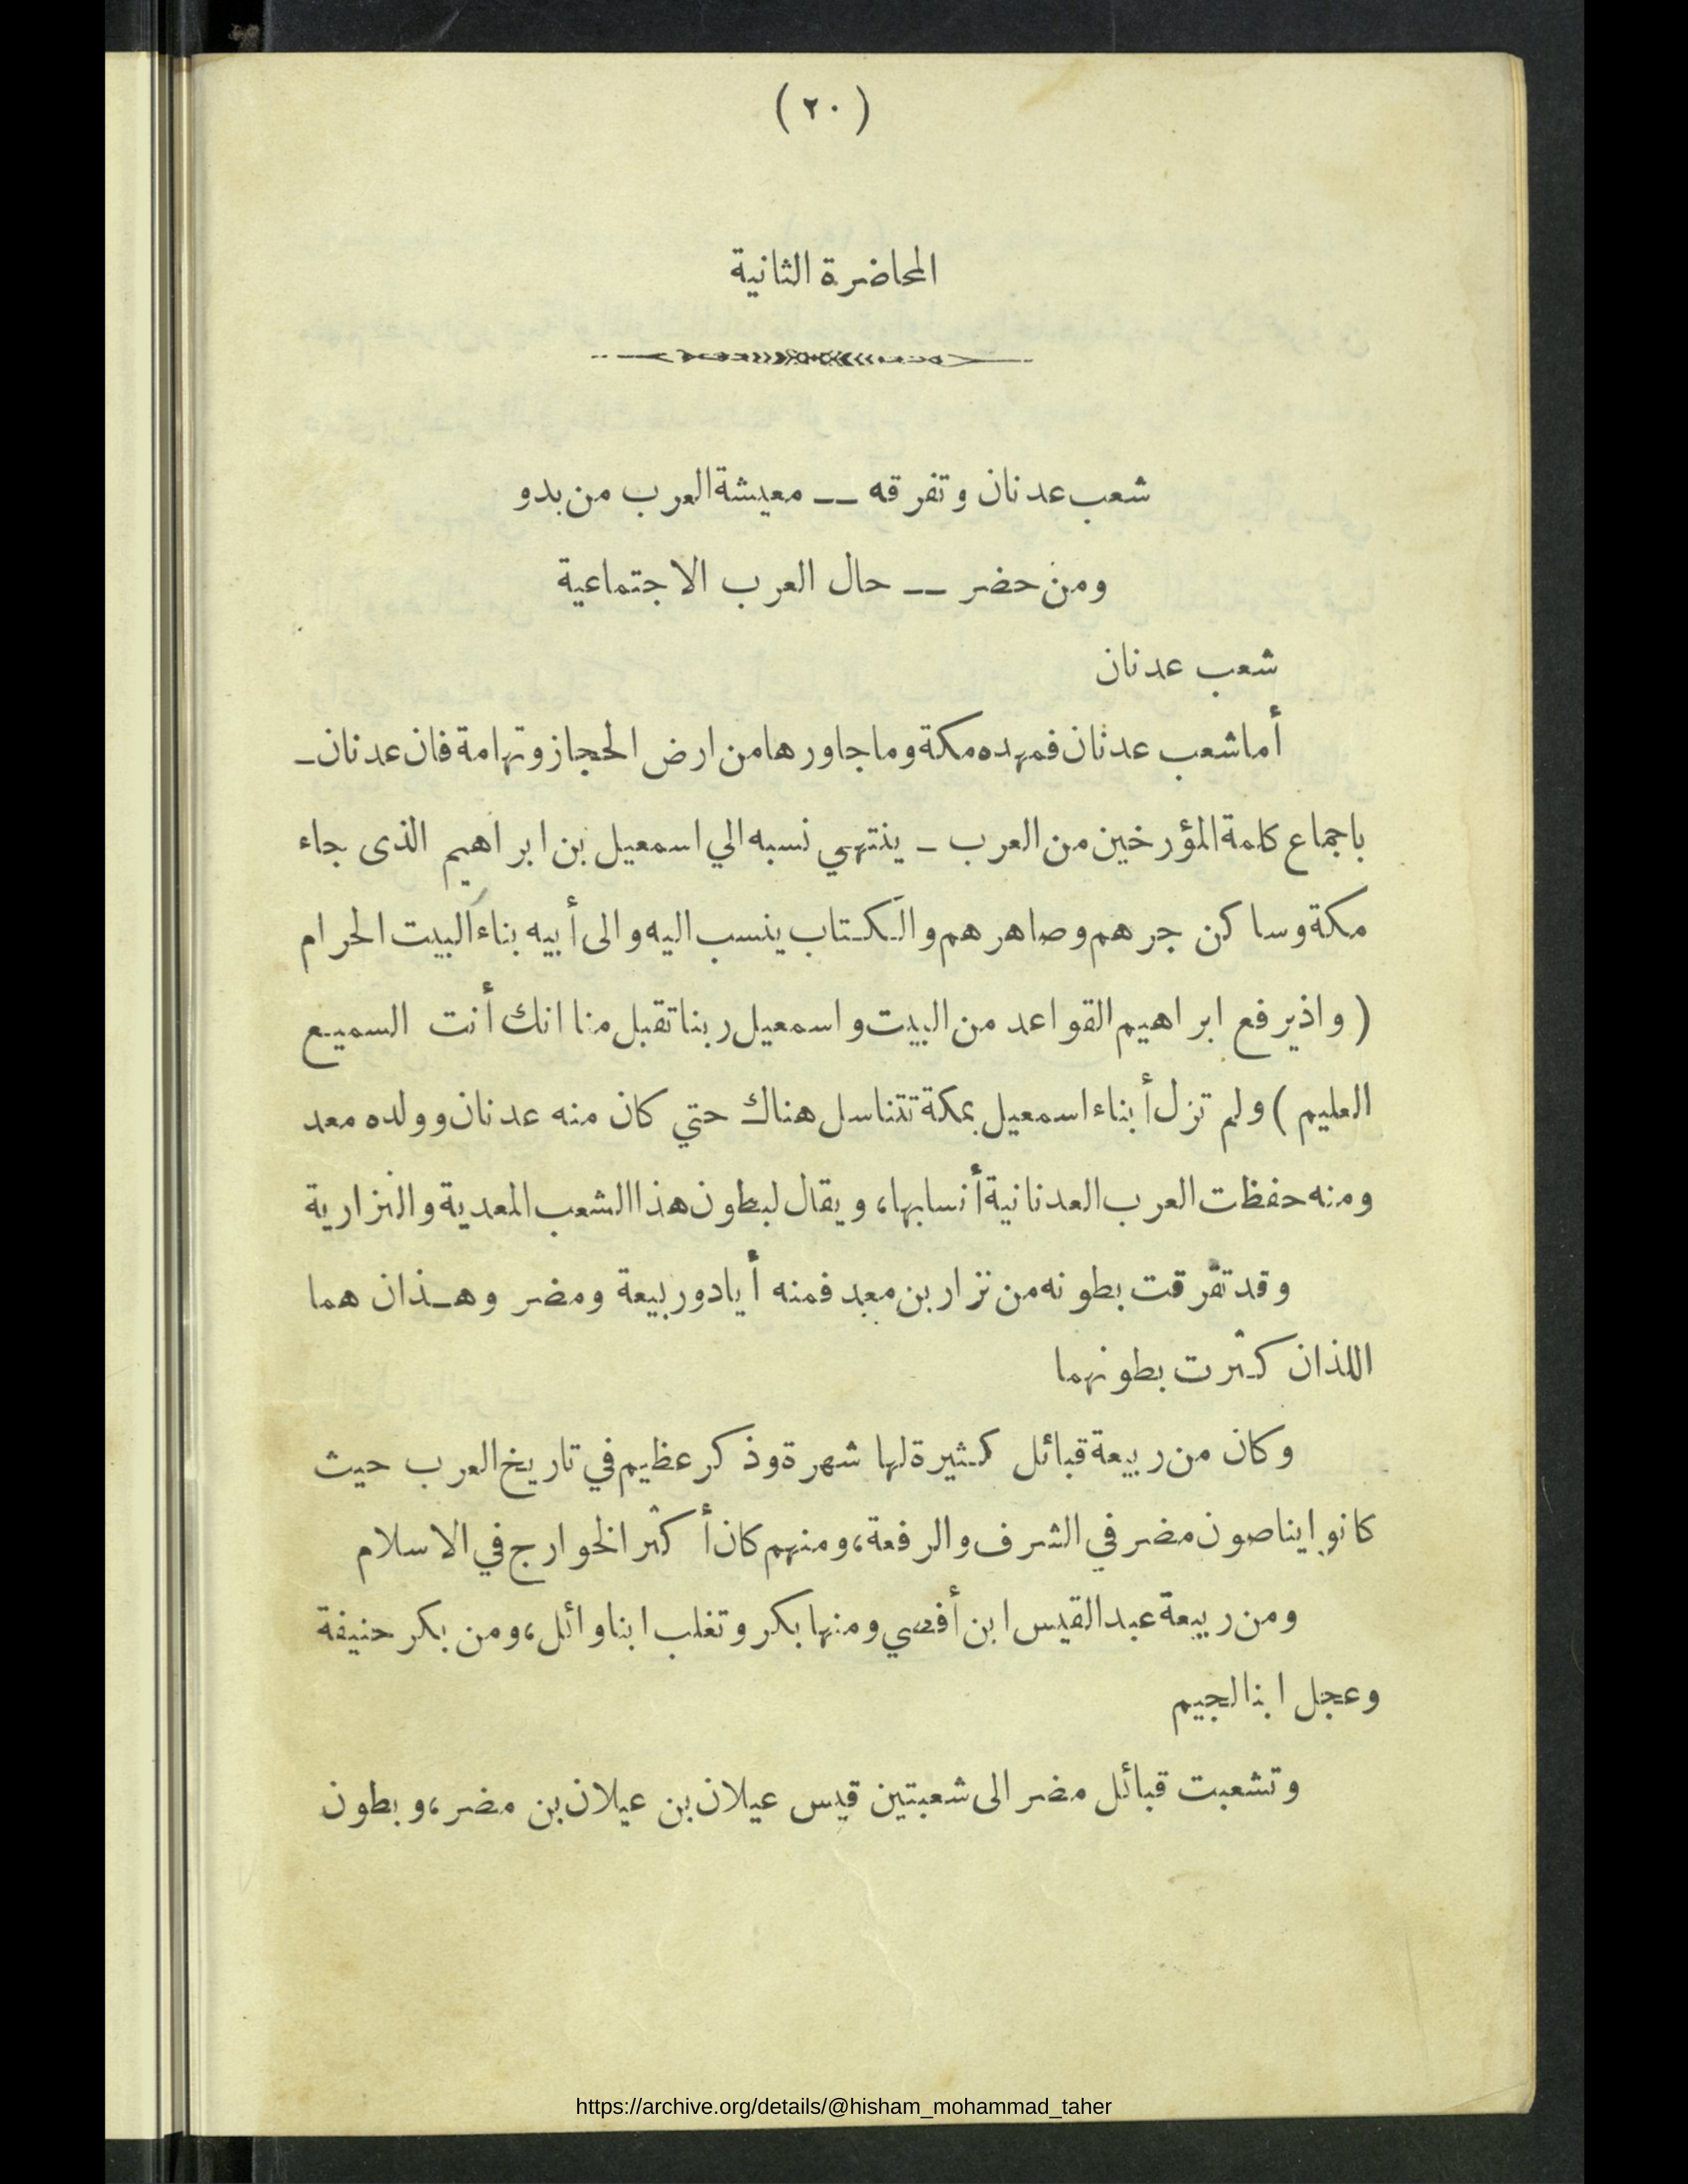 ( ٢٠ )
المحاضرة الثانية
شعب عدنان وتفرقه -- معيشة العرب من بدو
ومن حضر -- حال العرب الاجتماعية
شعب عدنان
أما شعب عدنان فمهده مكة وما جاورها من ارض الحجاز وتهامة فان عدنان -
باجماع كلمة المؤرخين من العرب - ينتهي نسبه الي اسمعيل بن ابراهيم الذى جاء
مكة وساكن جرهم وصاهرهم والكتاب ينسب اليه والى أبيه بناء البيت الحرام
( واذ يرفع ابراهيم القواعد من البيت واسمعيل ربنا تقبل منا انك أنت السميع
العليم ) ولم تزل أبناء اسمعيل بمكة تتناسل هناك حتي كان منه عدنان وولده معد
ومنه حفظت العرب العدنانية أنسابها، ويقال لبطون هذا الشعب المعدية والنزارية
وقد تفرقت بطونه من نزار بن معد فمنه أياد وربيعة ومضر وهـذان هما
اللذان كثرت بطونهما
وكان من ربيعة قبائل كثيرة لها شهرة وذكر عظيم في تاريخ العرب حيث
كانوا يناصون مضر في الشرف والرفعة، ومنهم كان أكثر الخوارج في الاسلام
ومن ربيعة عبد القيس ابن أفصي ومنها بكر وتغلب ابنا وائل، ومن بكر حنيفة
وعجل ابنا لجيم
وتشعبت قبائل مضر الى شعبتين قيس عيلان بن عيلان بن مضر، وبطون
https://archive.org/details/@hisham_mohammad_taher